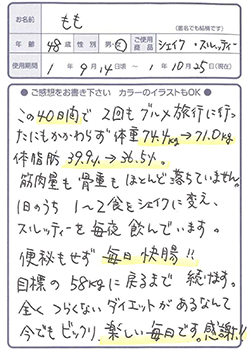 お名前 もも
(匿名でも結構です)
年齢 48歳 性別 男・女 ご使用商品 シェイク・スルッティー
使用期間 1年9月14日頃 ~ 1年10月25日(現在)
●ご感想をお書き下さい カラーのイラストもOK●
この40日間で 2回もグルメ旅行に行っ
たにもかかわらず 体重74.4kg→71.0kg
体脂肪 39.9%→36.5%。
筋肉量も骨量もほとんど落ちていません。
1日のうち 1~2食をシェイクに変え、
スルッティーを毎夜飲んでいます。
便秘もせず 毎日 快腸!!
目標の58kgに戻るまで 続けます。
全くつらくないダイエットがあるなんて
今でもビックリ。楽しい毎日です。感謝!!